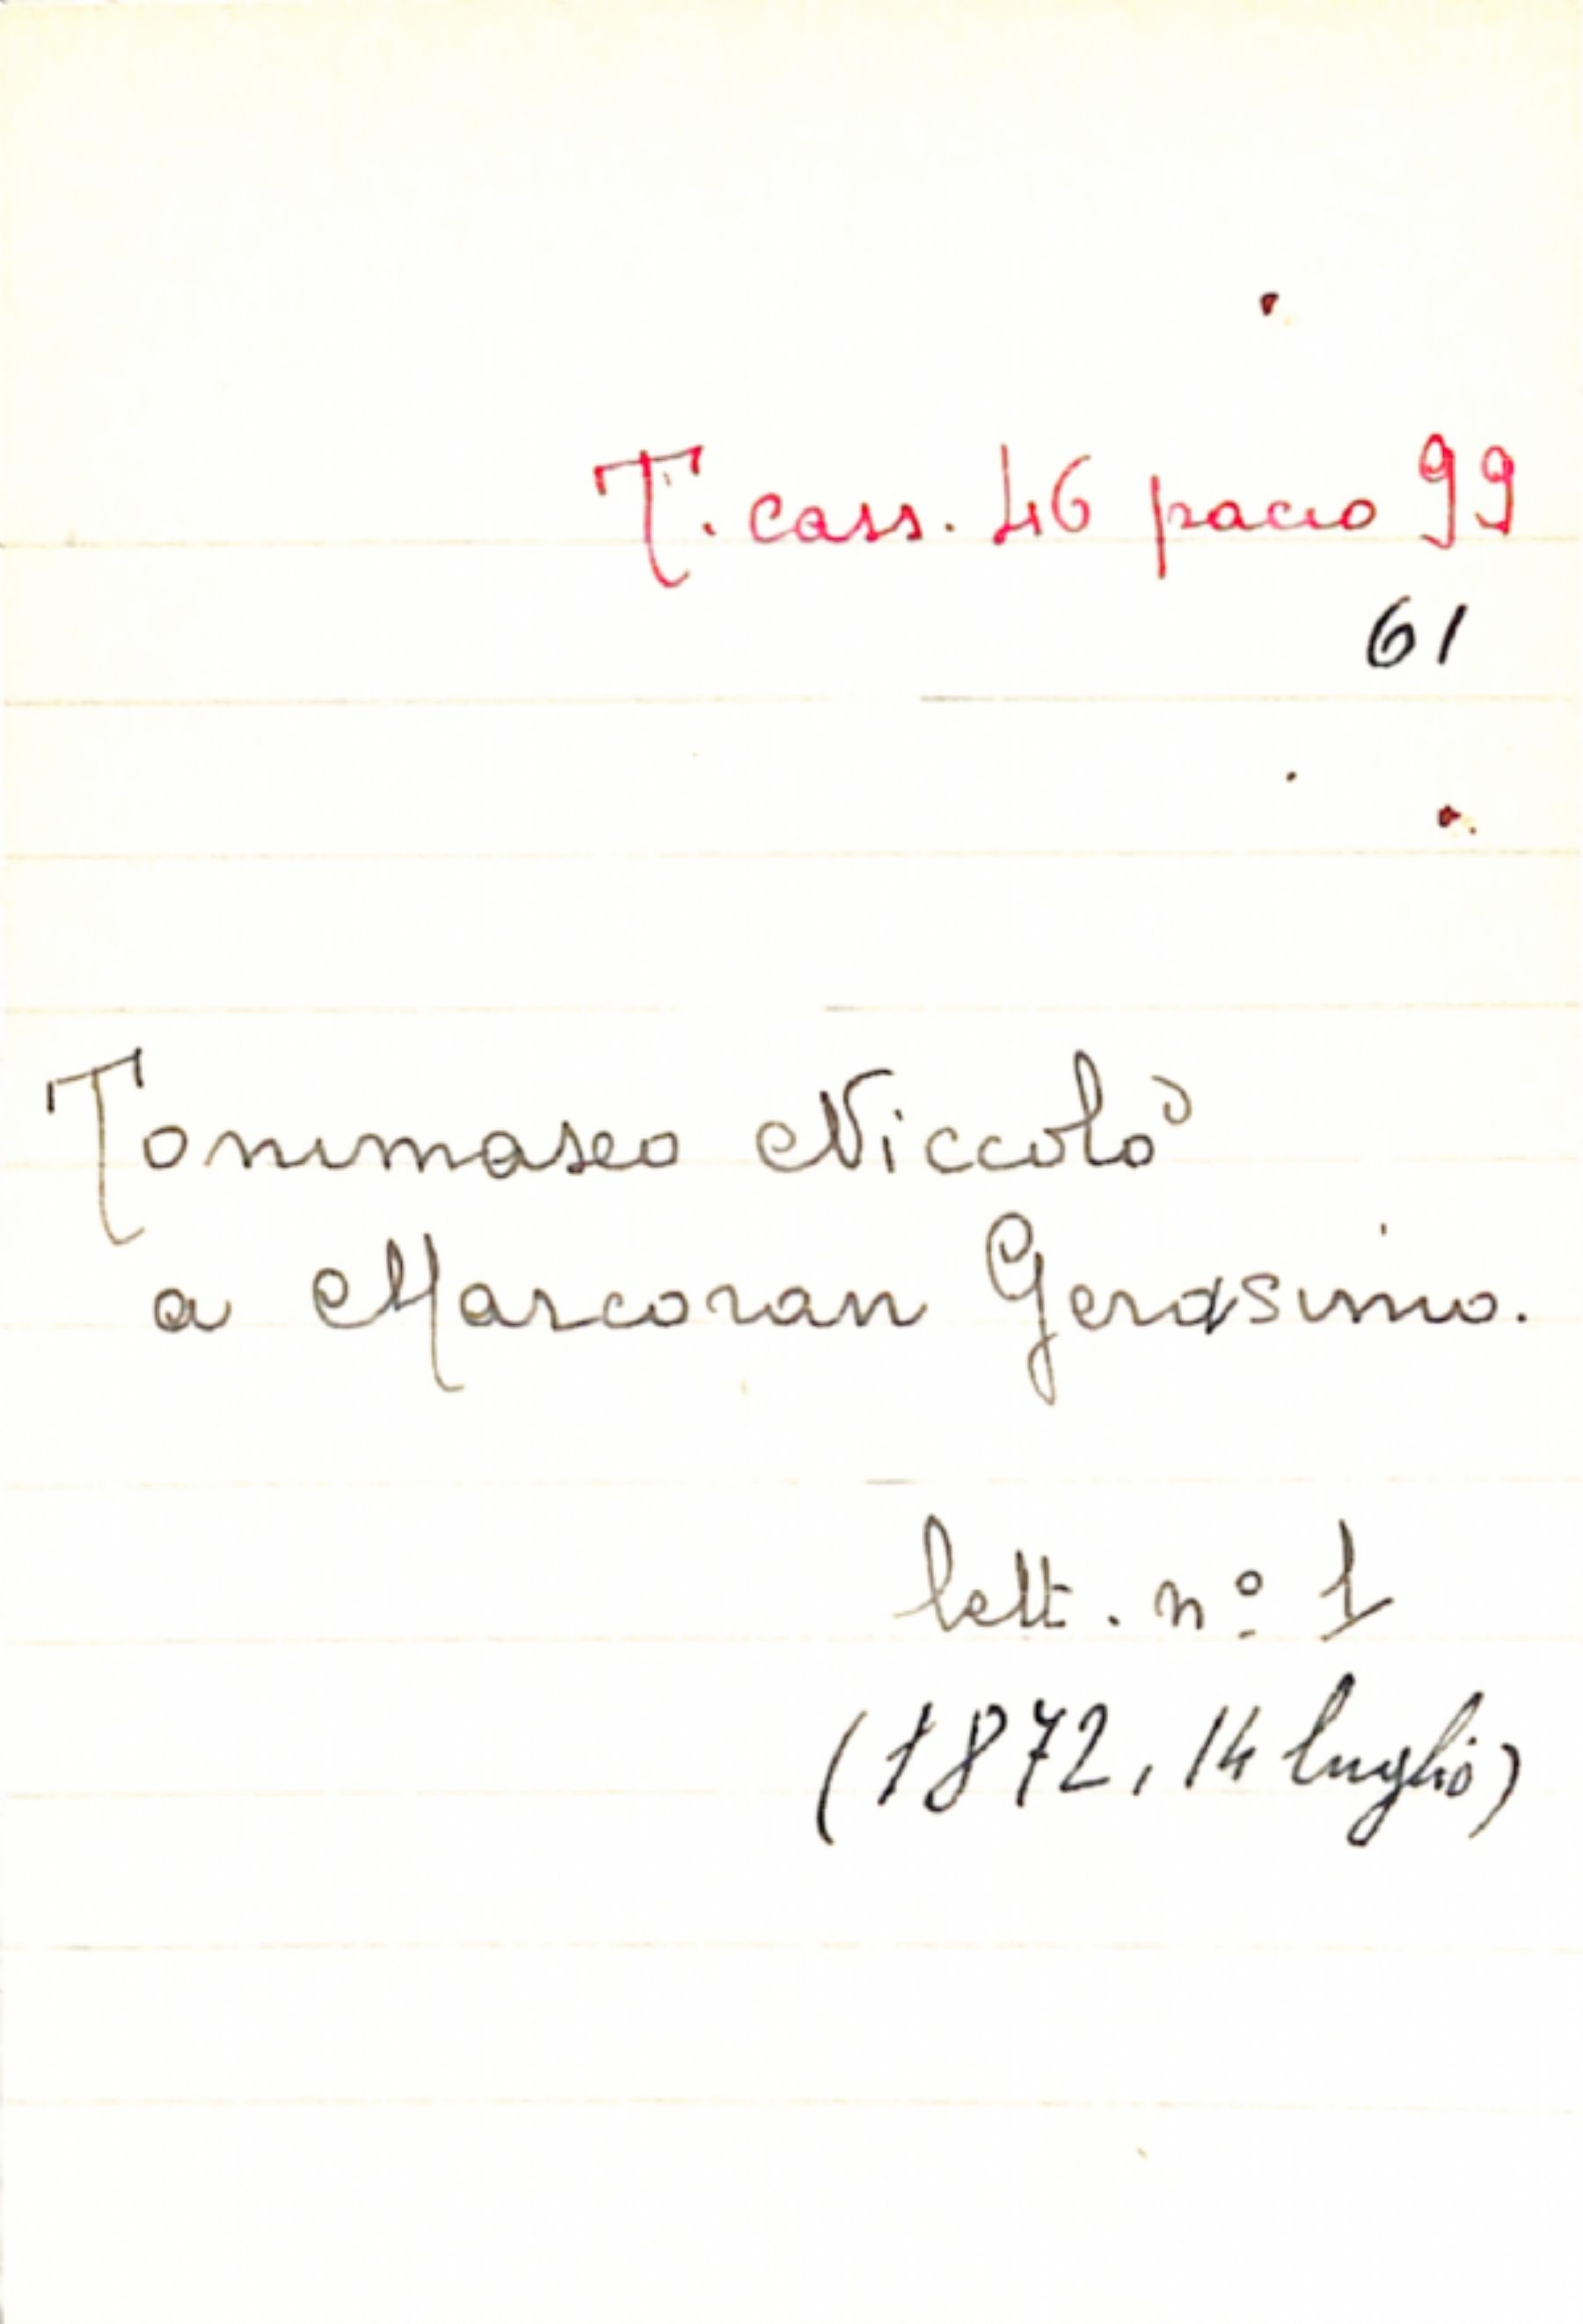 T. cass. 46 pacco 99
61
Tommaseo Niccolò
a Marcoran Gerasimo.
lett. nº 1
(1872, 14 luglio)